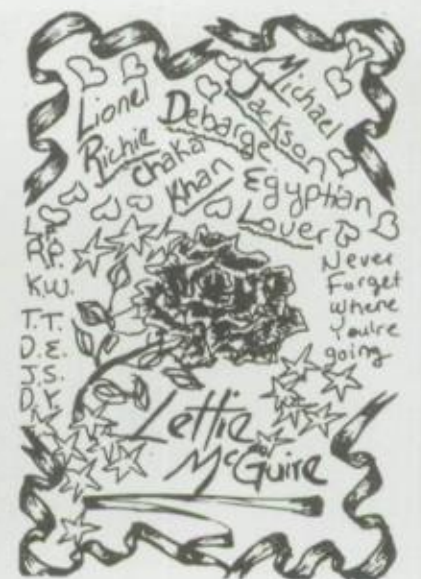 Lionel
Richie
Debarge
Michael
Jackson
Chaka
Khan
Egyptian
Lover
R.P.
K.W.
T.T.
D.E.
J.S.
D.Y.
Never
Forget
Where
You're
going
Lettie
McGuire